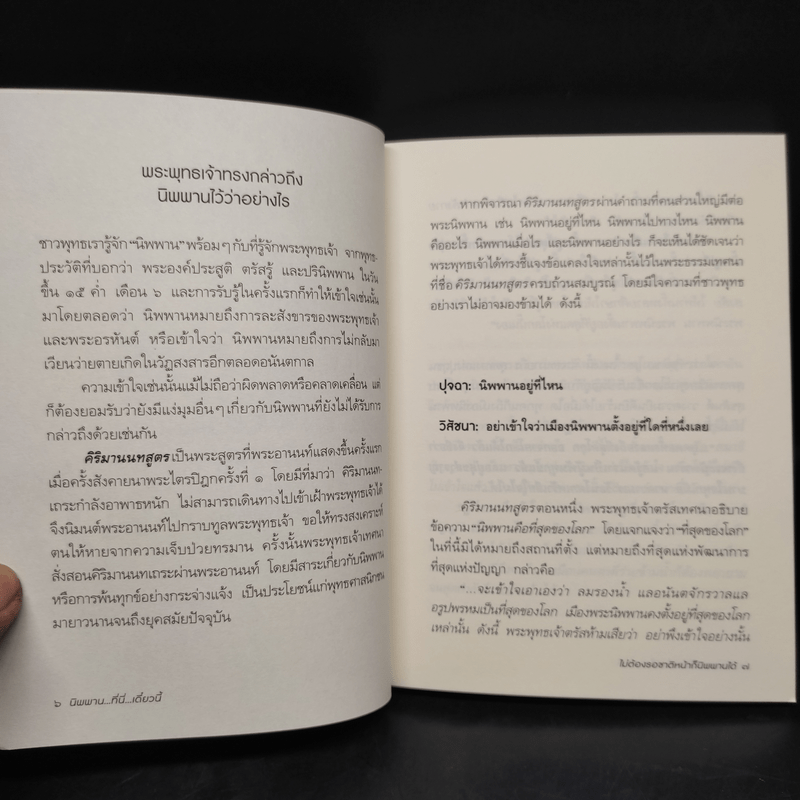 พระพุทธเจ้าทรงกล่าวถึง
นิพพานไว้ว่าอย่างไร
ชาวพุทธเรารู้จัก “นิพพาน” พร้อมๆ กับที่รู้จักพระพุทธเจ้า จากพุทธ-
ประวัติที่บอกว่า พระองค์ประสูติ ตรัสรู้ และปรินิพพาน ในวัน
ขึ้น ๑๕ ค่ำ เดือน ๖ และการรับรู้ในครั้งแรกก็ทำให้เข้าใจเช่นนั้น
มาโดยตลอดว่า นิพพานหมายถึงการละสังขารของพระพุทธเจ้า
และพระอรหันต์ หรือเข้าใจว่า นิพพานหมายถึงการไม่กลับมา
เวียนว่ายตายเกิดในวัฏสงสารอีกตลอดอนันตกาล
ความเข้าใจเช่นนั้นแม้ไม่ถือว่าผิดพลาดหรือคลาดเคลื่อน แต่
ก็ต้องยอมรับว่ายังมีแง่มุมอื่นๆ เกี่ยวกับนิพพานที่ยังไม่ได้รับการ
กล่าวถึงด้วยเช่นกัน
คิริมานนทสูตร เป็นพระสูตรที่พระอานนท์แสดงขึ้นครั้งแรก
เมื่อครั้งสังคายนาพระไตรปิฎกครั้งที่ ๑ โดยมีที่มาว่า คิริมานนท-
เถระกำลังอาพาธหนัก ไม่สามารถเดินทางไปเข้าเฝ้าพระพุทธเจ้าได้
จึงนิมนต์พระอานนท์ไปกราบทูลพระพุทธเจ้า ขอให้ทรงสงเคราะห์
ตนให้หายจากความเจ็บป่วยทรมาน ครั้งนั้นพระพุทธเจ้าเทศนา
สั่งสอนคิริมานนทเถระผ่านพระอานนท์ โดยมีสาระเกี่ยวกับนิพพาน
หรือการพ้นทุกข์อย่างกระจ่างแจ้ง เป็นประโยชน์แก่พุทธศาสนิกชน
มายาวนานจนถึงยุคสมัยปัจจุบัน
๖ นิพพาน...ที่นี่...เดี๋ยวนี้
หากพิจารณา คิริมานนทสูตร ผ่านคำถามที่คนส่วนใหญ่มีต่อ
พระนิพพาน เช่น นิพพานอยู่ที่ไหน นิพพานไปทางไหน นิพพาน
คืออะไร นิพพานเมื่อไร และนิพพานอย่างไร ก็จะเห็นได้ชัดเจนว่า
พระพุทธเจ้าได้ทรงชี้แจงข้อแคลงใจเหล่านั้นไว้ในพระธรรมเทศนา
ที่ชื่อ คิริมานนทสูตร ครบถ้วนสมบูรณ์ โดยมีใจความที่ชาวพุทธ
อย่างเราไม่อาจมองข้ามได้ ดังนี้
ปุจฉา: นิพพานอยู่ที่ไหน
วิสัชนา: อย่าเข้าใจว่าเมืองนิพพานตั้งอยู่ที่ใดที่หนึ่งเลย
คิริมานนทสูตร ตอนหนึ่ง พระพุทธเจ้าตรัสเทศนาอธิบาย
ข้อความ “นิพพานคือที่สุดของโลก” โดยแจกแจงว่า “ที่สุดของโลก”
ในที่นี้มิได้หมายถึงสถานที่ตั้ง แต่หมายถึงที่สุดแห่งพัฒนาการ
ที่สุดแห่งปัญญา กล่าวคือ
“...จะเข้าใจเอาเองว่า ลมรองน้ำ แลอนันตจักรวาลแล
อรูปพรหมเป็นที่สุดของโลก เมืองพระนิพพานคงตั้งอยู่ที่สุดของโลก
เหล่านั้น ดังนี้ พระพุทธเจ้าตรัสห้ามเสียว่า อย่าพึงเข้าใจอย่างนั้น
ไม่ต้องรอชาติหน้าก็นิพพานได้ ๗